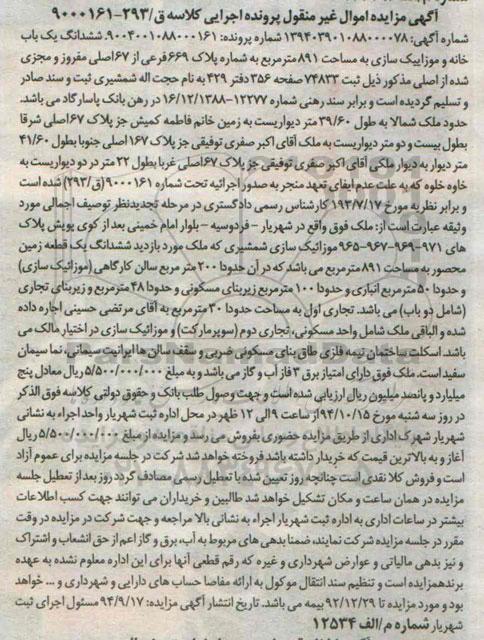 آگهی مزایده اموال غیر منقول پرونده اجرایی کلاسه ق/۲۹۳-۹۰۰۰۱۶۱
شماره آگهی: ۱۳۹۴۰۳۹۰۱۰۸۸۰۰۰۰۷۸ شماره پرونده: ۹۰۰۴۰۰۱۰۸۸۰۰۰۱۶۱. ششدانگ یک باب
خانه و موزاییک سازی به مساحت ۸۹۱ مترمربع به شماره پلاک ۶۶۹ فرعی از ۶۷ اصلی مفروز و مجزی
شده از اصلی مذکور ذیل ثبت ۷۴۸۳۳ صفحه ۳۵۶ دفتر ۴۲۹ به نام حجت اله شمشیری ثبت و سند صادر
و تسلیم گردیده است و برابر سند رهنی شماره ۱۲۲۷۷-۱۶/۱۲/۱۳۸۸ در رهن بانک پاسارگاد می باشد.
حدود ملک شمالا به طول ۳۹/۶۰ متر دیواریست به زمین خانم فاطمه کمیش جز پلاک ۶۷ اصلی شرقا
بطول بیست و دو متر دیواریست به ملک آقای اکبر صفری توفیقی جز پلاک ۱۶۷ اصلی جنوبا بطول ۴۱/۶۰
متر دیوار به دیوار ملکی آقای اکبر صفری توفیقی جز پلاک ۶۷ اصلی غربا بطول ۲۲ متر در دو دیواریست به
خاوه خلوه که به علت عدم ایفای تعهد منجر به صدور اجرائیه تحت شماره ۹۰۰۰۱۶۱ (ق/۲۹۳) شده است
و برابر نظریه مورخ ۱۹۳/۷/۱۷ کارشناس رسمی دادگستری در مرحله تجدیدنظر توصیف اجمالی مورد
وثیقه عبارت است از: ملک فوق واقع در شهریار - فردوسیه - بلوار امام خمینی بعد از کوی پویش پلاک
های ۹۷۱-۹۶۹-۹۶۷-۹۶۵ موزائیک سازی شمشیری که ملک مورد بازدید ششدانگ یک قطعه زمین
محصور به مساحت ۸۹۱ مترمربع می باشد که در آن حدودا ۲۰۰ متر مربع سالن کارگاهی (موزائیک سازی)
و حدودا ۵۰ مترمربع انباری و حدودا ۱۰۰ مترمربع زیربنای مسکونی و حدودا ۴۸ مترمربع و زیربنای تجاری
(شامل دو باب) می باشد. تجاری اول به مساحت حدودا ۳۰ مترمربع به آقای مرتضی حسینی اجاره داده
شده و الباقی ملک شامل واحد مسکونی، تجاری دوم (سوپرمارکت) و موزائیک سازی در اختیار مالک می
باشد. اسکلت ساختمان نیمه فلزی طاق بنای مسکونی ضربی و سقف سالن ها ایرانیت سیمانی، نما سیمان
سفید است. ملک فوق دارای امتیاز برق ۳ فاز آب و گاز می باشد و به مبلغ ۵/۵۰۰/۰۰۰/۰۰۰ ریال معادل پنج
میلیارد و پانصد میلیون ریال ارزیابی شده است و جهت وصول طلب بانک و حقوق دولتی کلاسه فوق الذکر
در روز سه شنبه مورخ ۹۴/۱۰/۱۵ از ساعت ۹ الی ۱۲ ظهر در محل اداره ثبت شهریار واحد اجراء به نشانی
شهریار شهرک اداری از طریق مزایده حضوری بفروش می رسد و مزایده از مبلغ ۵/۵۰۰/۰۰۰/۰۰۰ ریال
آغاز و به بالاترین قیمت که خریدار داشته باشد فروخته خواهد شد شرکت در جلسه مزایده برای عموم آزاد
است و فروش کلا نقدی است چنانچه روز تعیین شده با تعطیل رسمی مصادف گردد روز بعد از تعطیل جلسه
مزایده در همان ساعت و مکان تشکیل خواهد شد طالبین و خریداران می توانند جهت کسب اطلاعات
بیشتر در ساعات اداری به اداره ثبت شهریار اجراء به نشانی بالا مراجعه و جهت شرکت در مزایده در وقت
مقرر در جلسه مزایده شرکت نمایند، ضمنا بدهی های مربوط به آب، برق و گاز اعم از حق انشعاب و اشتراک
و نیز بدهی مالیاتی و عوارض شهرداری و غیره که رقم قطعی آنها برای این اداره معلوم نشده به عهده
برنده مزایده است و تنظیم سند انتقال موکول به ارائه مفاصا حساب های دارایی و شهرداری و ... خواهد
بود و مورد مزایده تا ۹۲/۱۲/۲۹ بیمه می باشد. تاریخ انتشار آگهی مزایده: ۹۴/۹/۱۷ مسئول اجرای ثبت
شهریار شماره م/الف ۱۲۵۳۴